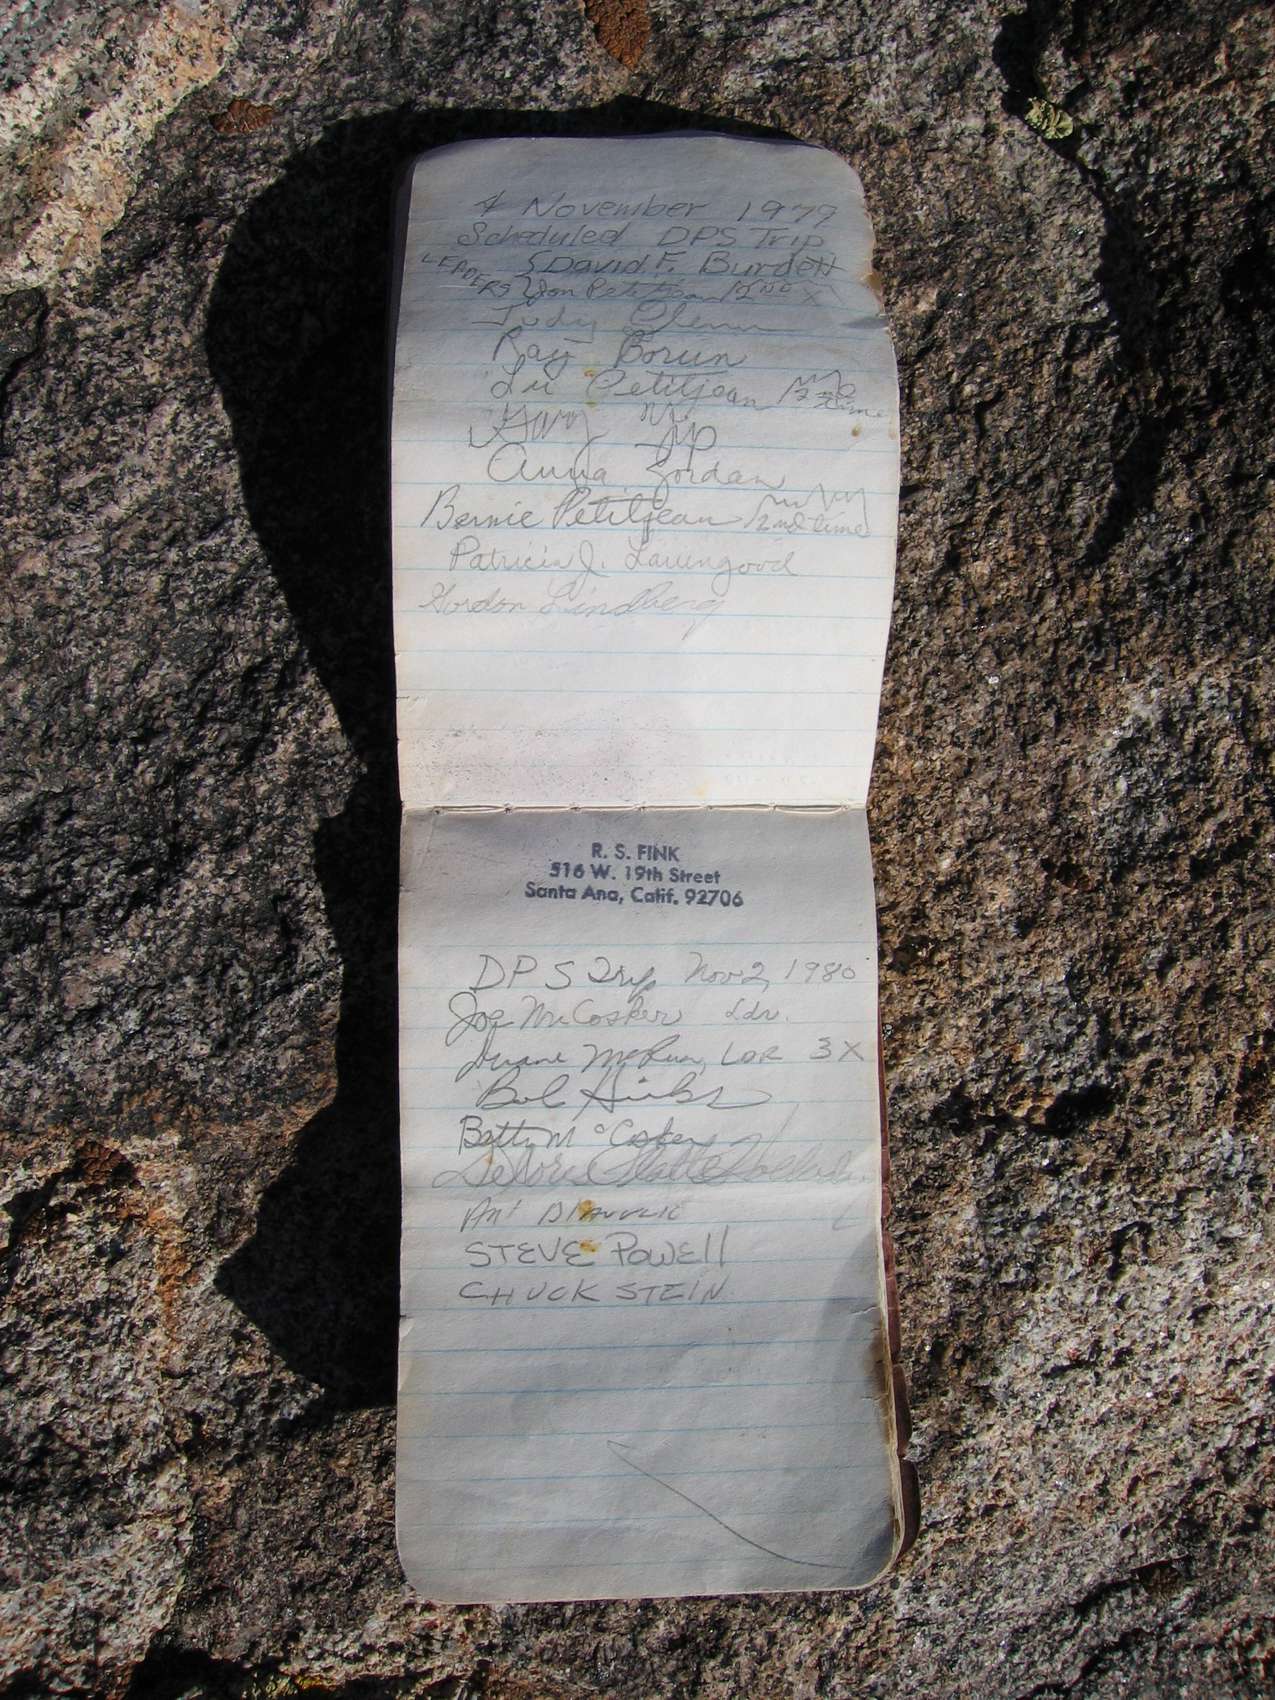 4 November 1979
Scheduled DPS Trip
LEADERS { David F. Burdett
Don Petitjean 2ND X
Judy Glenn
Ray Borun
Lu Petitjean 2nd time
Gary
Anna Jordan
Bernie Petitjean 2nd time
Patricia J.
Gordon Lindberg
R. S. FINK
516 W. 19th Street
Santa Ana, Calif. 92706
DPS Trip Nov 2, 1980
Joe McCosker Ldr.
Duane McRuer, LDR 3X
Bob Hicks
Betty McCosker
STEVE POWELL
CHUCK STEIN